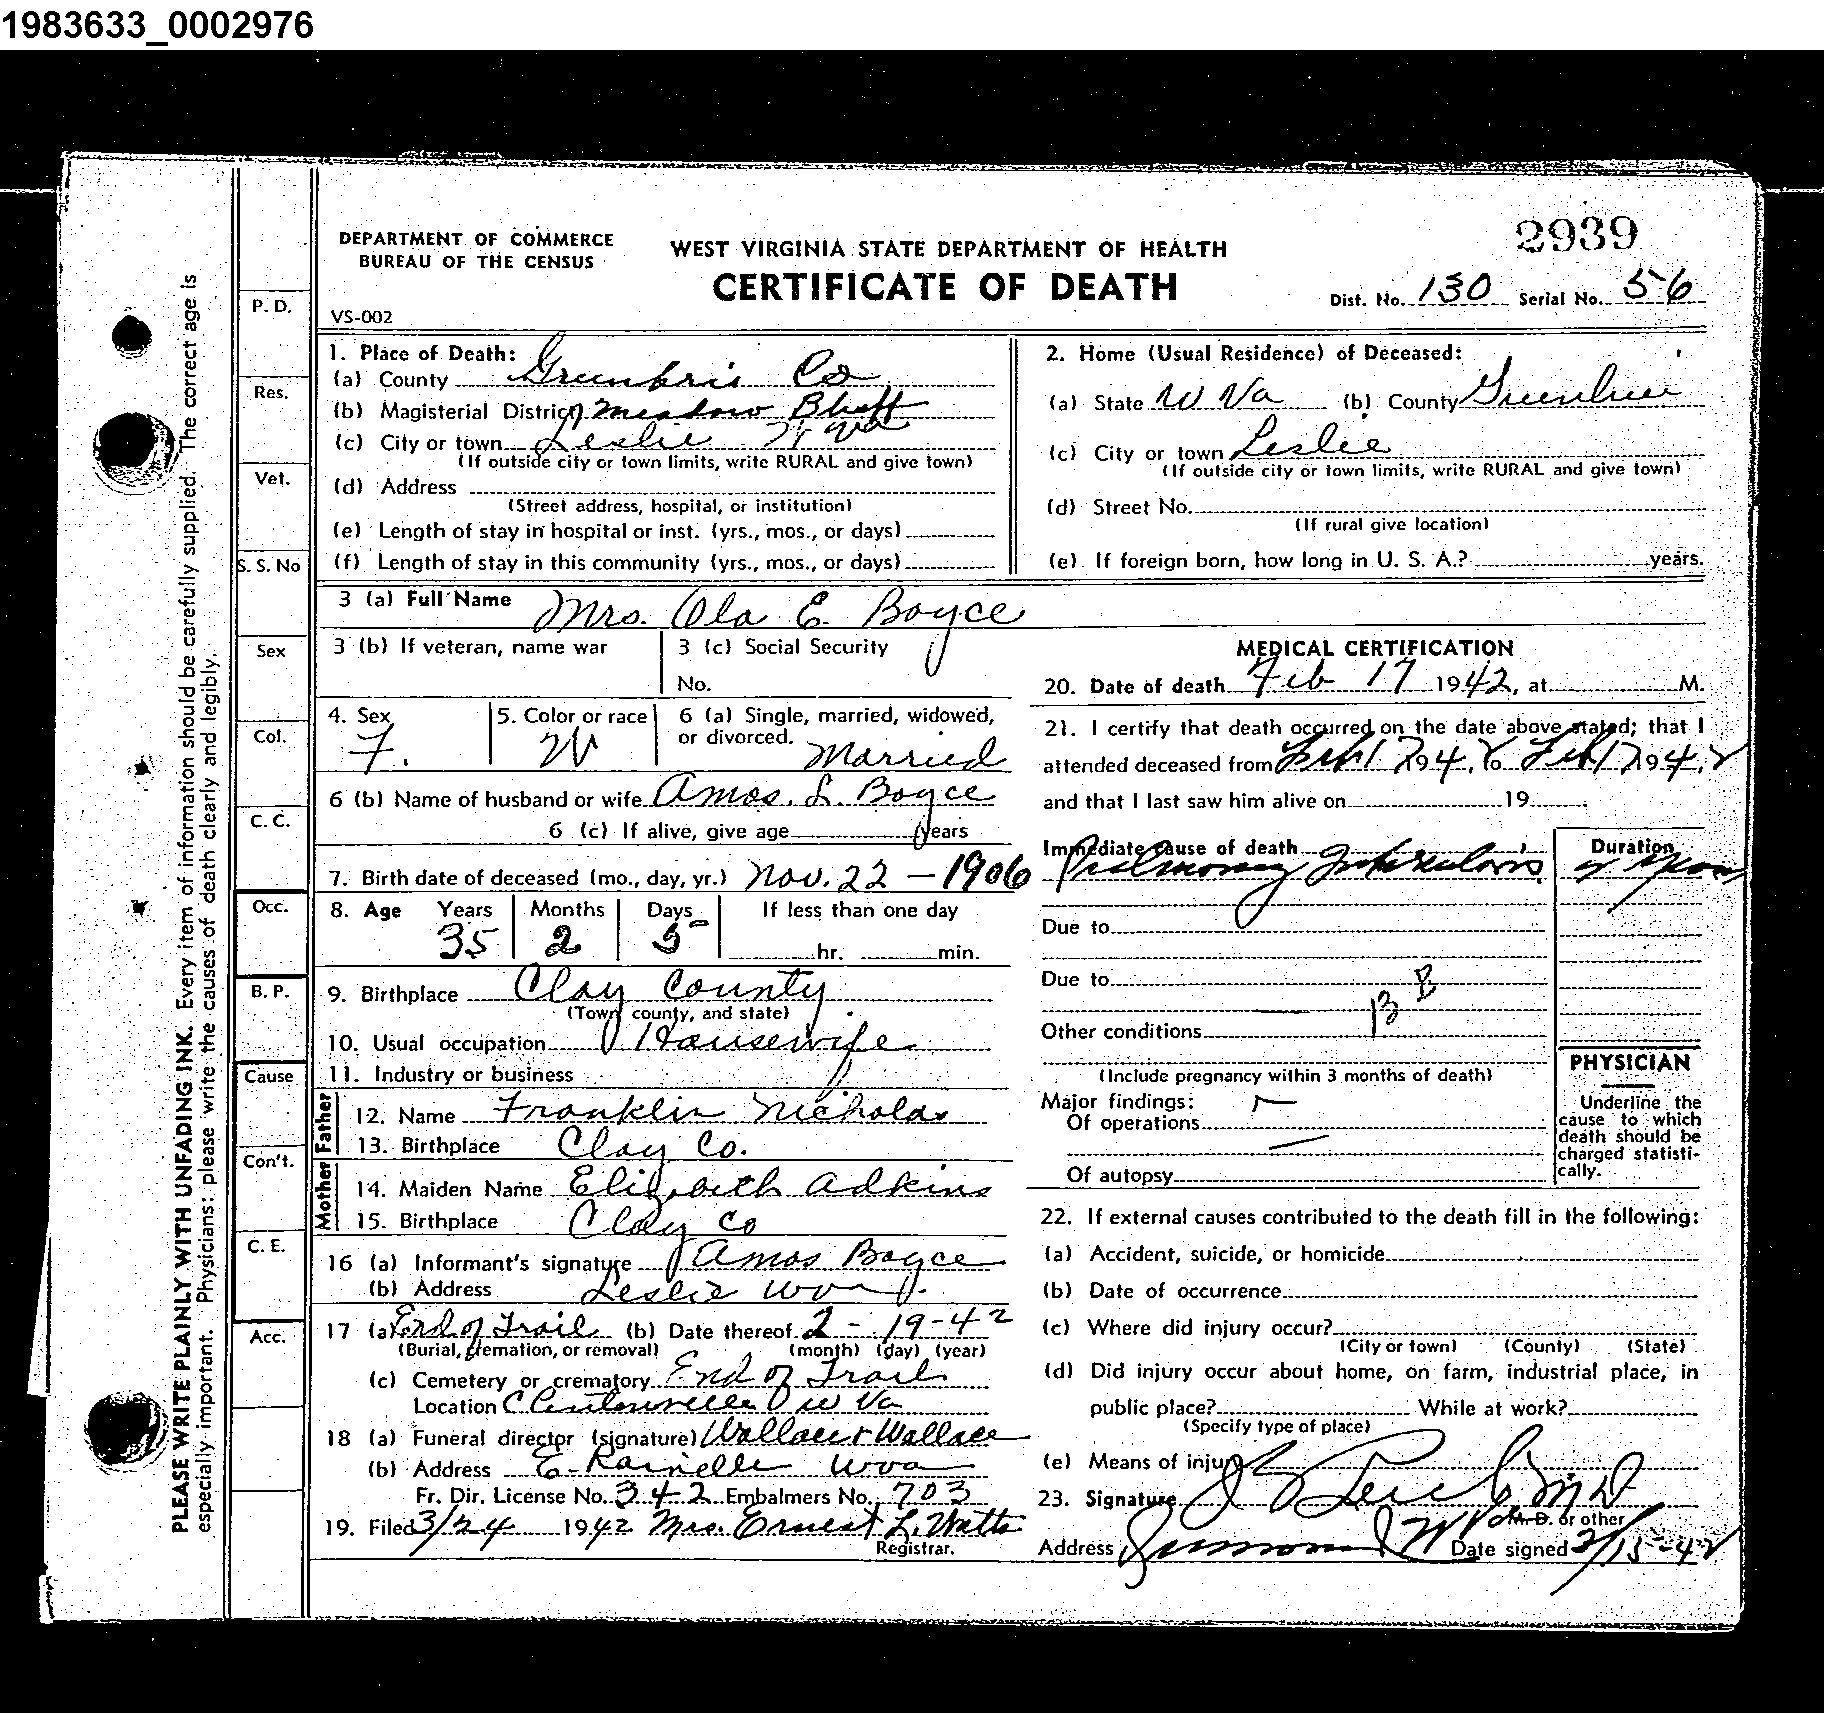 1983633_0002976
2939
DEPARTMENT OF COMMERCE
BUREAU OF THE CENSUS
WEST VIRGINIA STATE DEPARTMENT OF HEALTH
CERTIFICATE OF DEATH
VS-002
Dist. No. 130 Serial No. 56
PLEASE WRITE PLAINLY WITH UNFADING INK. Every item of information should be carefully supplied. The correct age is
especially important. Physicians: please write the causes of death clearly and legibly.
P. D.
Res.
Vet.
S. S. No
Sex
Col.
C. C.
Occ.
B. P.
Cause
Con't.
C. E.
Acc.
1. Place of Death:
(a) County Greenbrie Co
(b) Magisterial District Meadow Bluff
(c) City or town Leslie W Va
(If outside city or town limits, write RURAL and give town)
(d) Address
(Street address, hospital, or institution)
(e) Length of stay in hospital or inst. (yrs., mos., or days)
(f) Length of stay in this community (yrs., mos., or days)
2. Home (Usual Residence) of Deceased:
(a) State W Va (b) County
(c) City or town Leslie
(If outside city or town limits, write RURAL and give town)
(d) Street No.
(If rural give location)
(e) If foreign born, how long in U. S. A.? years.
3 (a) Full Name Mrs. Ola E. Boyce
3 (b) If veteran, name war
3 (c) Social Security
No.
4. Sex
F.
5. Color or race
W
6 (a) Single, married, widowed,
or divorced. Married
6 (b) Name of husband or wife Amos. L. Boyce
6 (c) If alive, give age years
7. Birth date of deceased (mo., day, yr.) Nov. 22 - 1906
8. Age Years Months Days If less than one day
35 2 5 hr. min.
9. Birthplace Clay County
(Town, county, and state)
10. Usual occupation Housewife
11. Industry or business
Father
12. Name Franklin Nicholas
13. Birthplace Clay Co.
Mother
14. Maiden Name Elizabeth Adkins
15. Birthplace Clay Co
16 (a) Informant's signature Amos Boyce
(b) Address Leslie Wva
17 (a) End of Trail (b) Date thereof 2-19-42
(Burial, cremation, or removal) (month) (day) (year)
(c) Cemetery or crematory End of Trail
Location Clintonville W Va
18 (a) Funeral director (signature) Wallace & Wallace
(b) Address E. Rainelle Wva
Fr. Dir. License No. 342 Embalmers No. 703
19. Filed 3/24 1942 Mrs. Ernest L. Watts
Registrar.
MEDICAL CERTIFICATION
20. Date of death Feb 17 1942, at M.
21. I certify that death occurred on the date above stated; that I
attended deceased from Feb 17 1942 to Feb 17 1942
and that I last saw him alive on 19
Immediate cause of death Duration
Pulmonary Tuberculosis
Due to
Due to
13 B
Other conditions
(Include pregnancy within 3 months of death)
Major findings:
Of operations
Of autopsy
PHYSICIAN
Underline the
cause to which
death should be
charged statisti-
cally.
22. If external causes contributed to the death fill in the following:
(a) Accident, suicide, or homicide
(b) Date of occurrence
(c) Where did injury occur?
(City or town) (County) (State)
(d) Did injury occur about home, on farm, industrial place, in
public place? While at work?
(Specify type of place)
(e) Means of injury
23. Signature
M. D. or other
Address Date signed